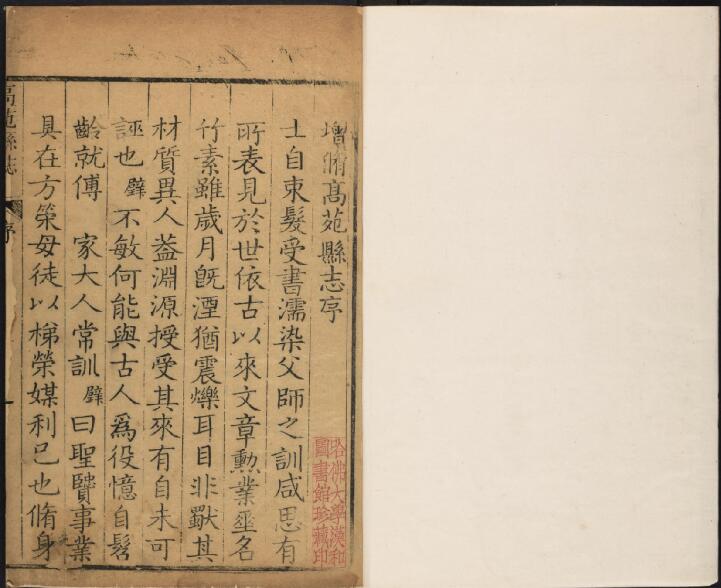 增脩髙苑縣志序
士自束髮受書濡染父師之訓咸思有
所表見於世依古以來文章勲業垂名
竹素雖歲月旣湮猶震爍耳目非獸其
材質異人葢淵源授受其來有自未可
誣也 璧 不敏何能與古人爲役憶自髫
齡就傅 家大人常訓 璧 曰聖賢事業
具在方策毋徒以梯榮媒利已也脩身
高苑縣志
序
哈佛大學漢和
圖書館珍藏印